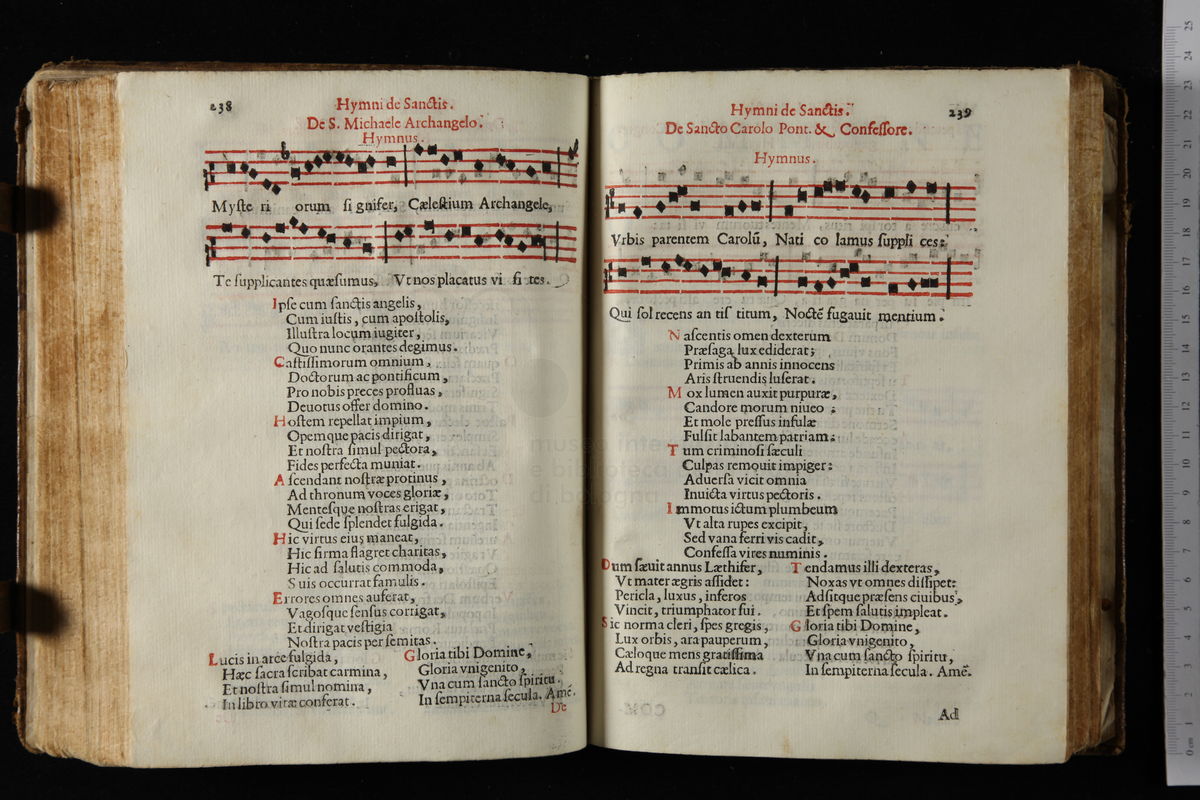 238
Hymni de Sanctis.
De S. Michaele Archangelo.
Hymnus.
Myſte ri orum ſi gnifer, Cæleſtium Archangele,
Te ſupplicantes quæſumus, Vt nos placatus vi ſi tes.
Ipſe cum ſanctis angelis,
Cum iuſtis, cum apoſtolis,
Illuſtra locum iugiter,
Quo nunc orantes degimus.
Caſtiſſimorum omnium,
Doctorum ac pontificum,
Pro nobis preces profluas,
Deuotus offer domino.
Hoſtem repellat impium,
Opemque pacis dirigat,
Et noſtra ſimul pectora,
Fides perfecta muniat.
Aſcendant noſtræ protinus,
Ad thronum voces gloriæ,
Menteſque noſtras erigat,
Qui ſede ſplendet fulgida.
Hic virtus eius maneat,
Hic firma flagret charitas,
Hic ad ſalutis commoda,
Suis occurrat famulis.
Errores omnes auferat,
Vagoſque ſenſus corrigat,
Et dirigat veſtigia
Noſtra pacis per ſemitas.
Lucis in arce fulgida,
Hæc ſacra ſcribat carmina,
Et noſtra ſimul nomina,
In libro vitæ conferat.
Gloria tibi Domine,
Gloria vnigenito,
Vna cum ſancto ſpiritu.
In ſempiterna ſecula. Amē.
De
239
Hymni de Sanctis.
De Sancto Carolo Pont. & Confeſſore.
Hymnus.
Vrbis parentem Carolū, Nati co lamus ſuppli ces:
Qui ſol recens an tiſ titum, Noctē fugauit mentium.
Naſcentis omen dexterum
Præſaga lux ediderat;
Primis ab annis innocens
Aris ſtruendis luſerat.
Mox lumen auxit purpuræ,
Candore morum niueo :
Et mole preſſus infulæ
Fulſit labantem patriam:
Tum criminoſi ſæculi
Culpas remouit impiger:
Aduerſa vicit omnia
Inuicta virtus pectoris.
Immotus ictum plumbeum
Vt alta rupes excipit,
Sed vana ferri vis cadit,
Confeſſa vires numinis.
Dum ſæuit annus Læthifer,
Vt mater ægris aſſidet:
Pericla, luxus, inferos
Vincit, triumphator ſui.
Sic norma cleri, ſpes gregis,
Lux orbis, ara pauperum,
Cæloque mens gratiſſima
Ad regna tranſit cælica.
Tendamus illi dexteras,
Noxas vt omnes diſſipet:
Adſitque præſens ciuibus,
Et ſpem ſalutis impleat.
Gloria tibi Domine,
Gloria vnigenito,
Vna cum ſancto ſpiritu,
In ſempiterna ſecula. Amē.
Ad